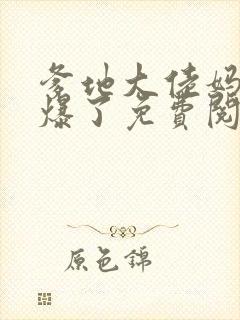 爹地大佬妈
爆了免費閱
原色錦